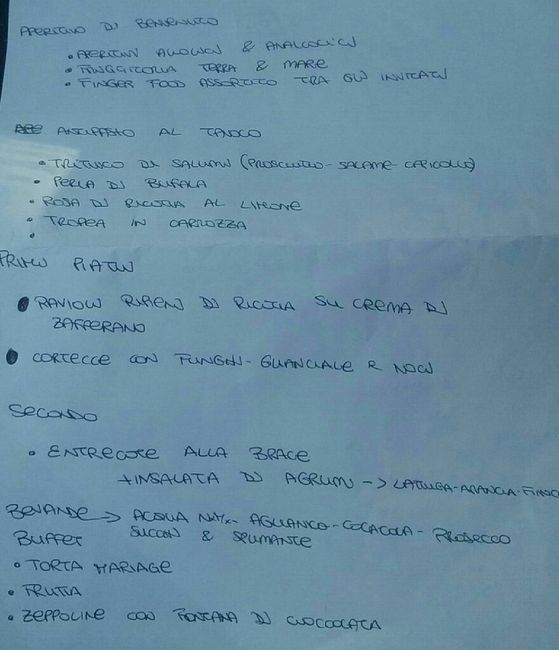 APERITIVO DI BENVENUTO
• APERITIVI ALCOLICI & ANALCOLICI
• FRIGGITORIA TERRA & MARE
• FINGER FOOD ASSORTITO TRA GLI INVITATI
ANTIPASTO AL TAVOLO
• TRITTICO DI SALUMI (PROSCIUTTO - SALAME - CAPICOLLO)
• PERLA DI BUFALA
• ROSA DI RICOTTA AL LIMONE
• TROPEA IN CARROZZA
•
PRIMI PIATTI
• RAVIOLI RIPIENI DI RICOTTA SU CREMA DI
ZAFFERANO
• CORTECCE CON FUNGHI - GUANCIALE E NOCI
SECONDO
• ENTRECOTE ALLA BRACE
+ INSALATA DI AGRUMI -> LATTUGA - ARANCIA - FINOC
BEVANDE -> ACQUA - AGLIANICO - COCACOLA - PROSECCO
SUCCHI & SPUMANTE
BUFFET
• TORTA MARIAGE
• FRUTTA
• ZEPPOLINE CON FONTANA DI CIOCCOLATA